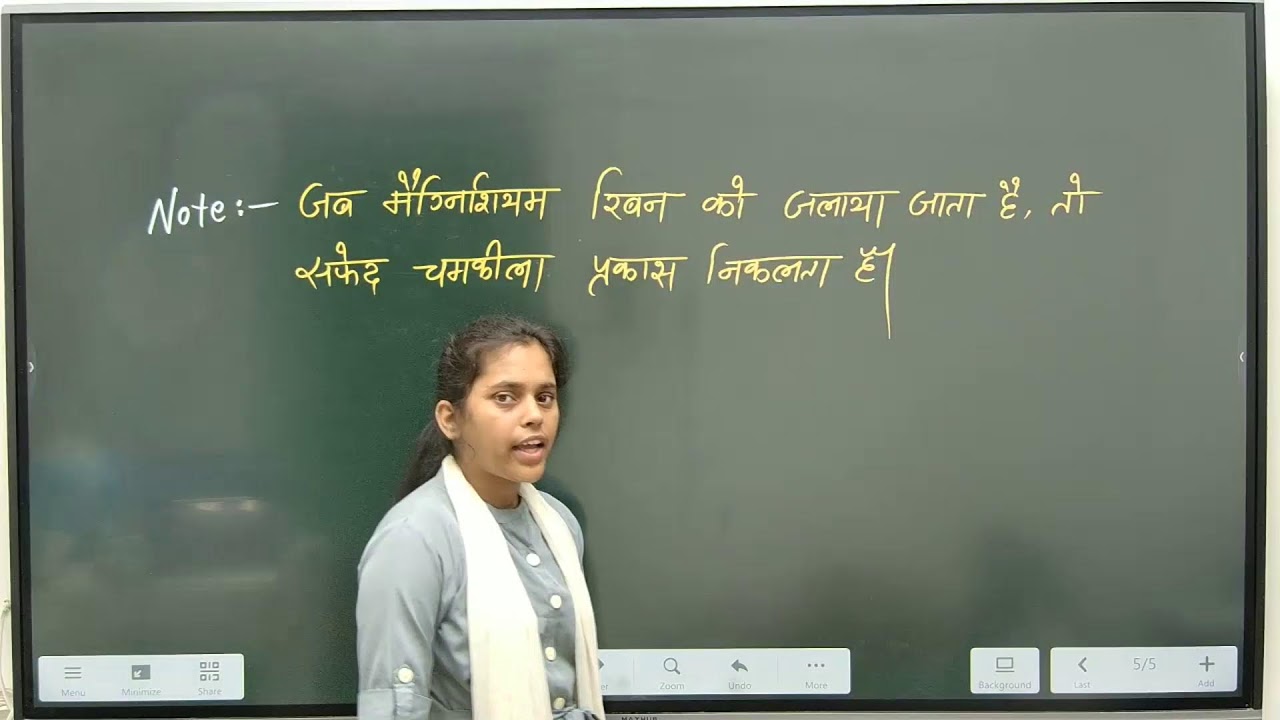 Note:- जब मैग्निशियम रिबन को जलाया जाता है, तो
सफेद चमकीला प्रकास निकलता है।
Menu
Minimize
Share
Zoom
Undo
More
Background
Last
5/5
Add